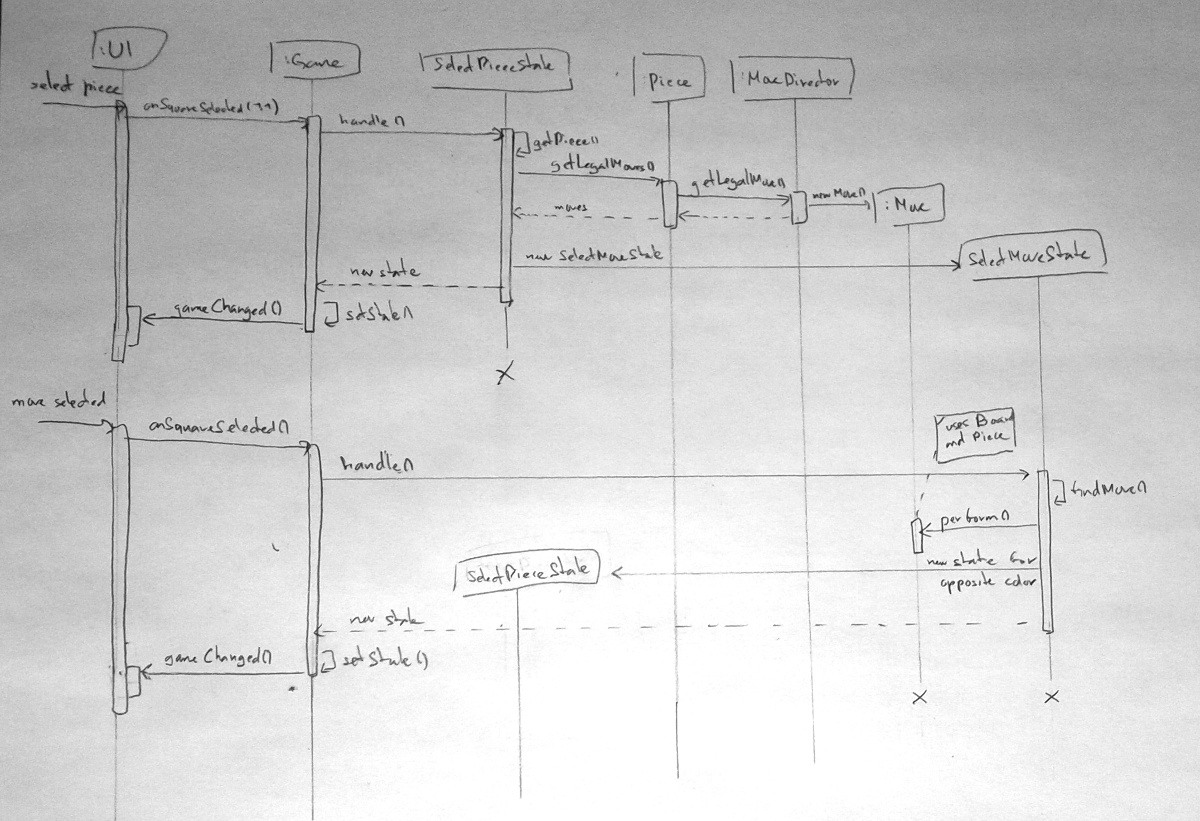 :UI
:Game
SelectPieceState
:Piece
:MoveDirector
select piece
onSquareSelected(1,1)
handle()
getPiece()
getLegalMoves()
getLegalMove()
new Move()
:Move
moves
new SelectMoveState
SelectMoveState
new state
gameChanged()
setState()
X
move selected
onSquareSelected()
uses Board
and Piece
handle()
findMove()
perform()
new state for
opposite color
SelectPieceState
new state
gameChanged()
setState()
X
X